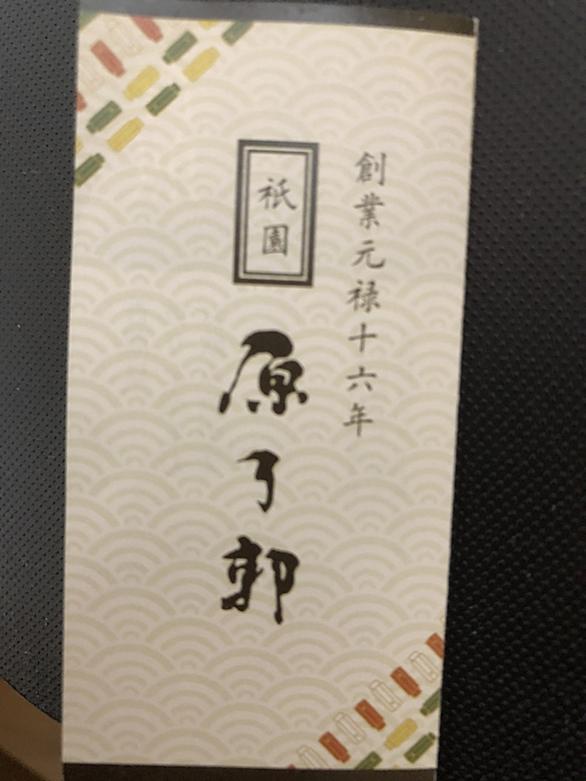 創業元禄十六年
祇園
原了郭